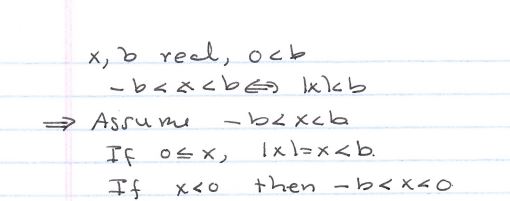 x, b real, 0<b
-b<x<b⟺ |x|<b
⟹ Assume -b<x<b
If 0≤x, |x|=x<b.
If x<0 then -b<x<0